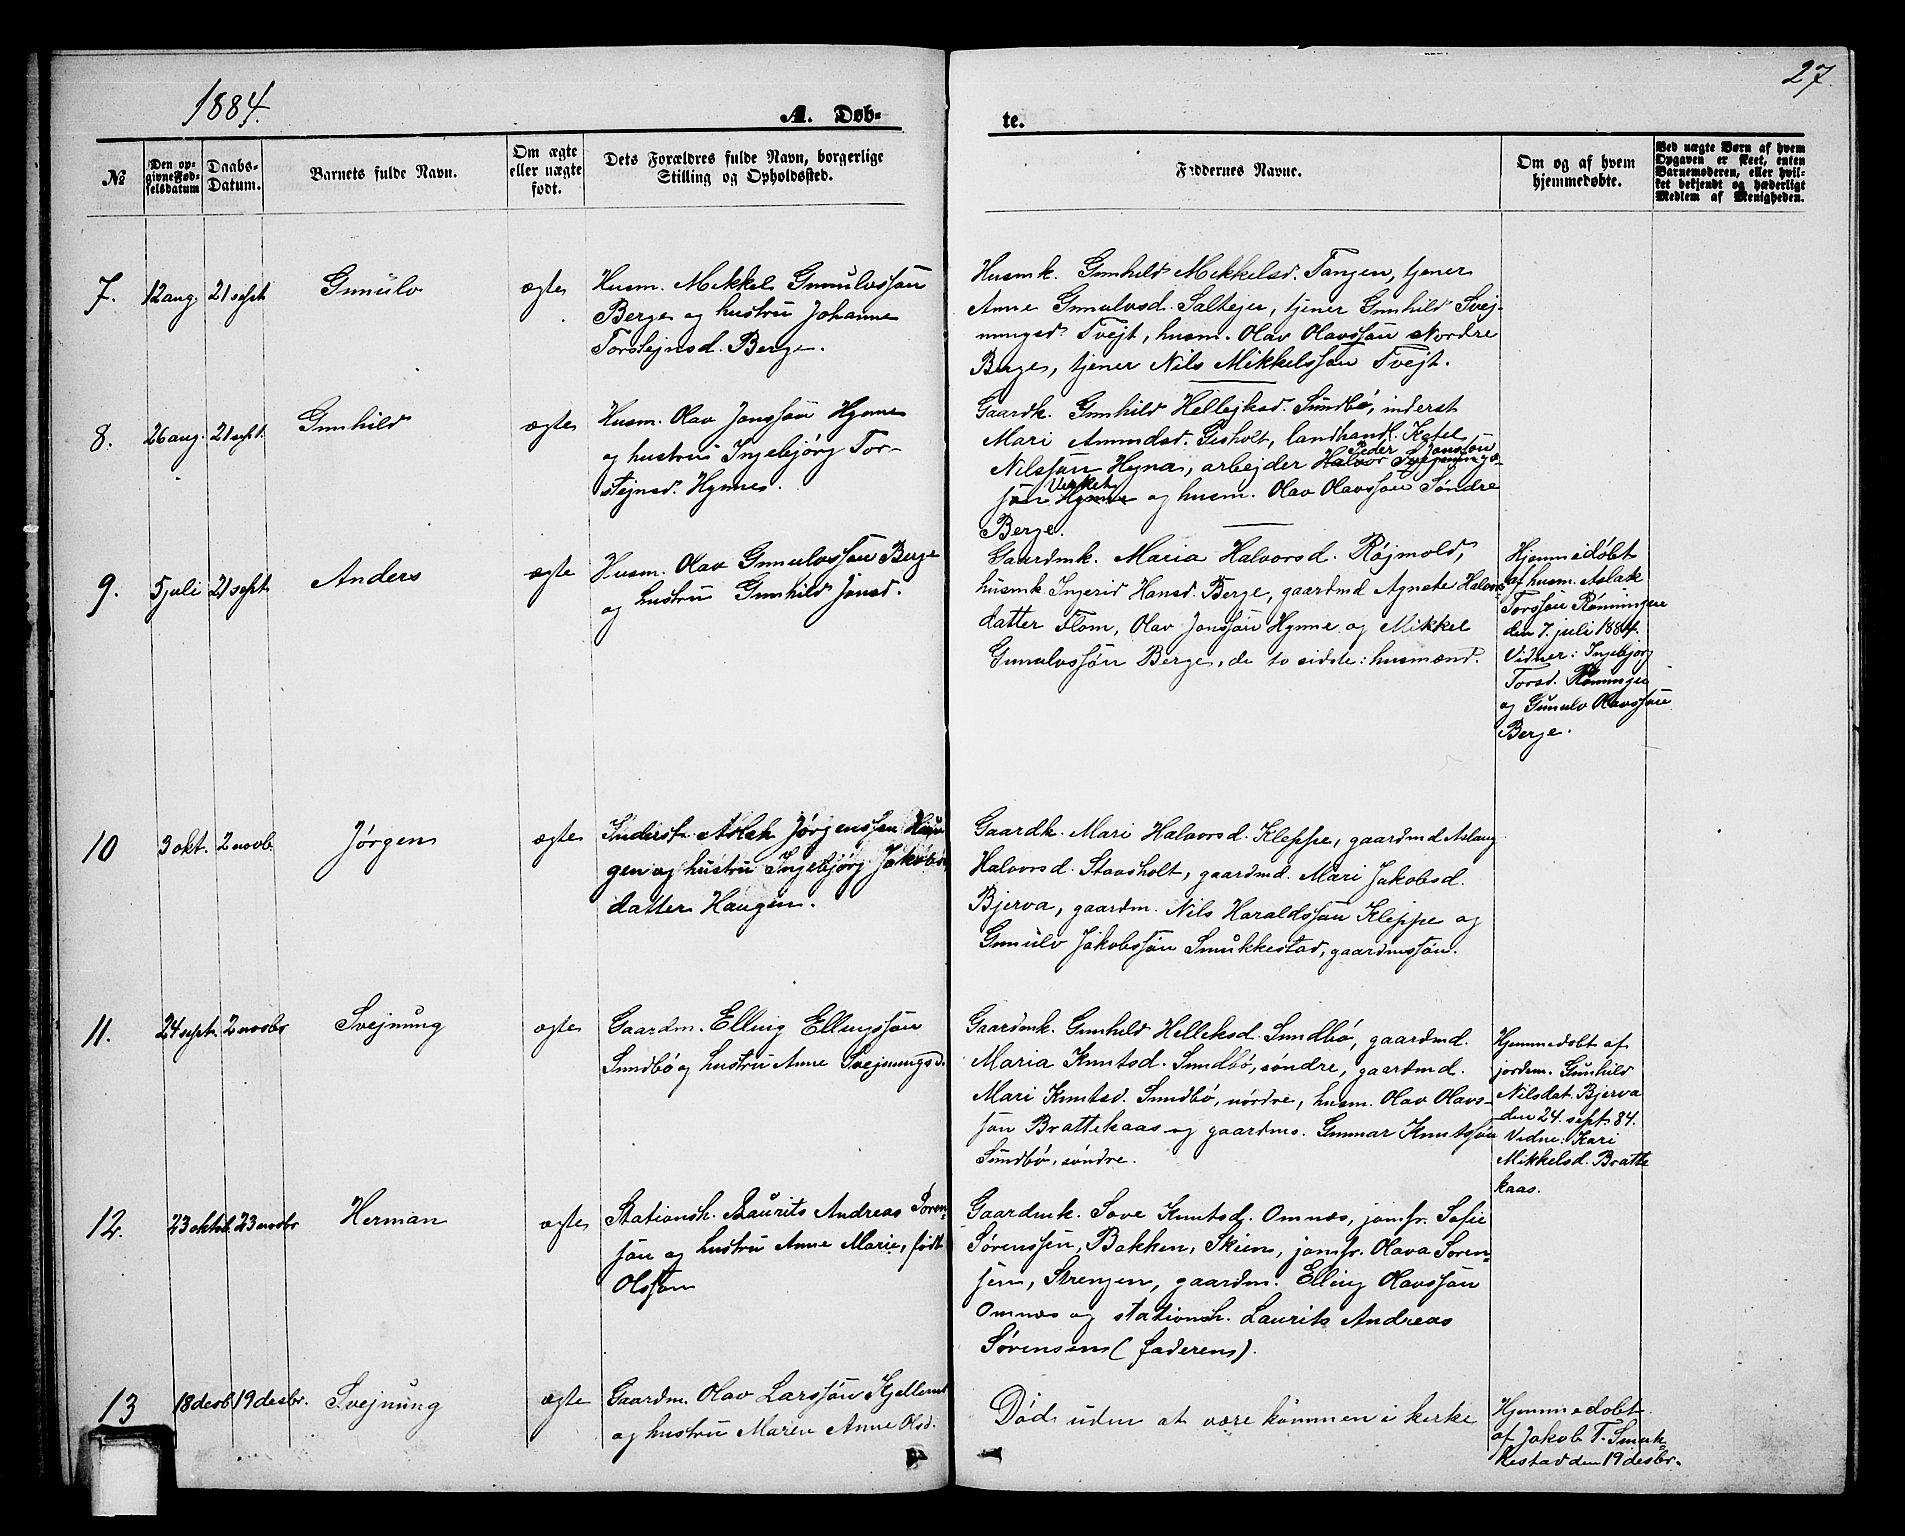 1884.
A. Døb-
te.
27.
№
Den op-
givne Fød-
selsdatum
Daabs-
Datum.
Barnets fulde Navn.
Om ægte
eller uægte
født.
Dets Forældres fulde Navn, borgerlige
Stilling og Opholdssted.
Faddernes Navne.
Om og af hvem
hjemmedøbte.
Ved uægte Børn af hvem
Opgaven er skeet, enten
Barnemoderen, eller hvil-
ket bekjendt og hæderligt
Medlem af Menigheden.
7.
12 aug.
21 sept
Gunulv
ægte
Husm. Mikkel Gunulvssøn
Berge og hustru Johanne
Torstejnsd. Berge.
Husmk. Gunhild Mikkelsd. Tangen, tjener
Anne Gunulvsd. Saltejer, tjener Gunhild Svej-
nungsd. Tvejt, husm. Olav Olavssøn Nordre
Berge, tjener Nils Mikkelssøn Tvejt.
8.
26 aug.
21 sept.
Gunhild
ægte
Husm. Olav Jonssøn Hynne
og hustru Ingebjørg Tor-
stejnsd. Hynne.
Gaardk. Gunhild Hellejksd. Sundbø, inderst
Mari Amundsd. Gisholt, landhandl. Ketel
Peder Jonssøn
Nilssøn Hegna, arbejder Halvor Svejnungs-
Verket
søn Hynne og husm. Olav Olavssøn Søndre
Berge.
9.
5 juli
21 sept
Anders
ægte
Husm. Olav Gunulvssøn Berge
og hustru Gunhild Jonsd.
Gaardmk. Maria Halvorsd. Røjmold,
husmk Ingerid Hansd. Berge, gaardmd Agnete Halvors
datter Flom, Olav Jonssøn Hynne og Mikkel
Gunulvssøn Berge, de to sidste: husmænd.
Hjemmedøbt
af husm. Aslak
Torssøn Rønningen
den 7. juli 1884.
Vidner: Ingebjørg
Torsd. Rønningen
og Gunulv Olavssøn
Berge.
10
3 okt.
2 novb.
Jørgen
ægte
Inderst Aslak Jørgenssen Hau
gen og hustru Ingebjørg Jakobs
datter Haugen.
Gaardk. Mari Halvorsd. Kleppe, gaardmd Aslaug
Halvorsd. Stavsholt, gaardmd. Mari Jakobsd.
Bjerva, gaardm. Nils Haraldssøn Kleppe og
Gunulv Jakobssøn Smukkestad, gaardmssøn.
11.
24 sept.
2 novbr
Svejnung
ægte
Gaardm. Elling Ellingssøn
Sundbø og hustru Anne Svejnungsd.
Gaardmk. Gunhild Helleksd. Sundbø, gaardmd.
Maria Knutsd. Sundbø, søndre, gaardmd.
Mari Knutsd. Sundbø, nordre, husm. Olav Olavs-
søn Brattekaas og gaardms. Gunnar Knutssøn
Sundbø, søndre.
Hjemmedøbt af
jordm. Gunhild
Nilsdat. Bjerva
den 24. sept. 84.
Vidne: Kari
Mikkelsd. Bratte
kaas.
12.
23 oktob.
23 novbr
Herman
ægte
Stationsh. Laurits Andreas Søren-
søn og hustru Anne Marie, født
Olssøn
Gaardmk. Save Knutsd. Omnæs, jomfr. Sofie
Sørenssen, Bakken, Skien, jomfr. Olava Søren-
sen, Strengen, gaardm. Elling Olavssøn
Omnæs og stationsh. Laurits Andreas
Sørensen (faderen).
13
18 desb.
19 desbr.
Svejnung
ægte
Gaardm. Olav Larssøn Kjellemo
og hustru Maren Anne Olsd.
Død uden at være kommen i kirke
Hjemmedøbt
af Jakob T. Smuk-
kestad den 19 desbr.